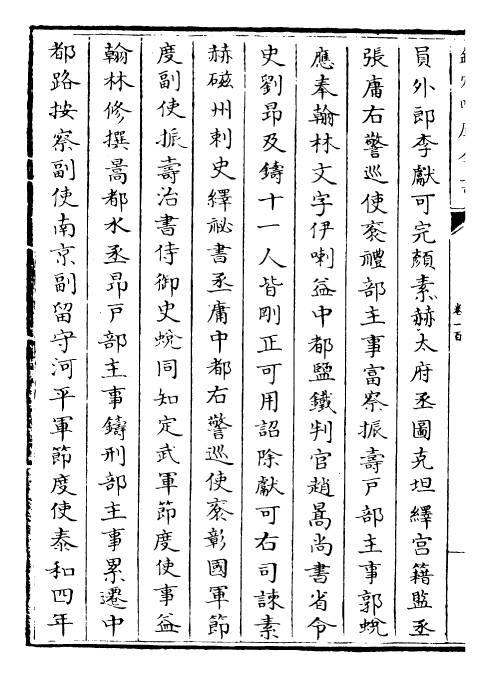 員外郎李獻可完顏素赫太府丞圖克坦繹宫籍監丞
張庸右警巡使衮禮部主事富察振壽戸部主事郭蛻
應奉翰林文字伊喇益中都鹽鐵判官趙暠尚書省令
史劉昂及鑄十一人皆剛正可用詔除獻可右司諫素
赫磁州刺史繹祕書丞庸中都右警巡使衮彰國軍節
度副使振壽治書侍御史蛻同知定武軍節度使事益
翰林修撰暠都水丞昂戸部主事鑄刑部主事累遷中
都路按察副使南京副留守河平軍節度使泰和四年
卷一百